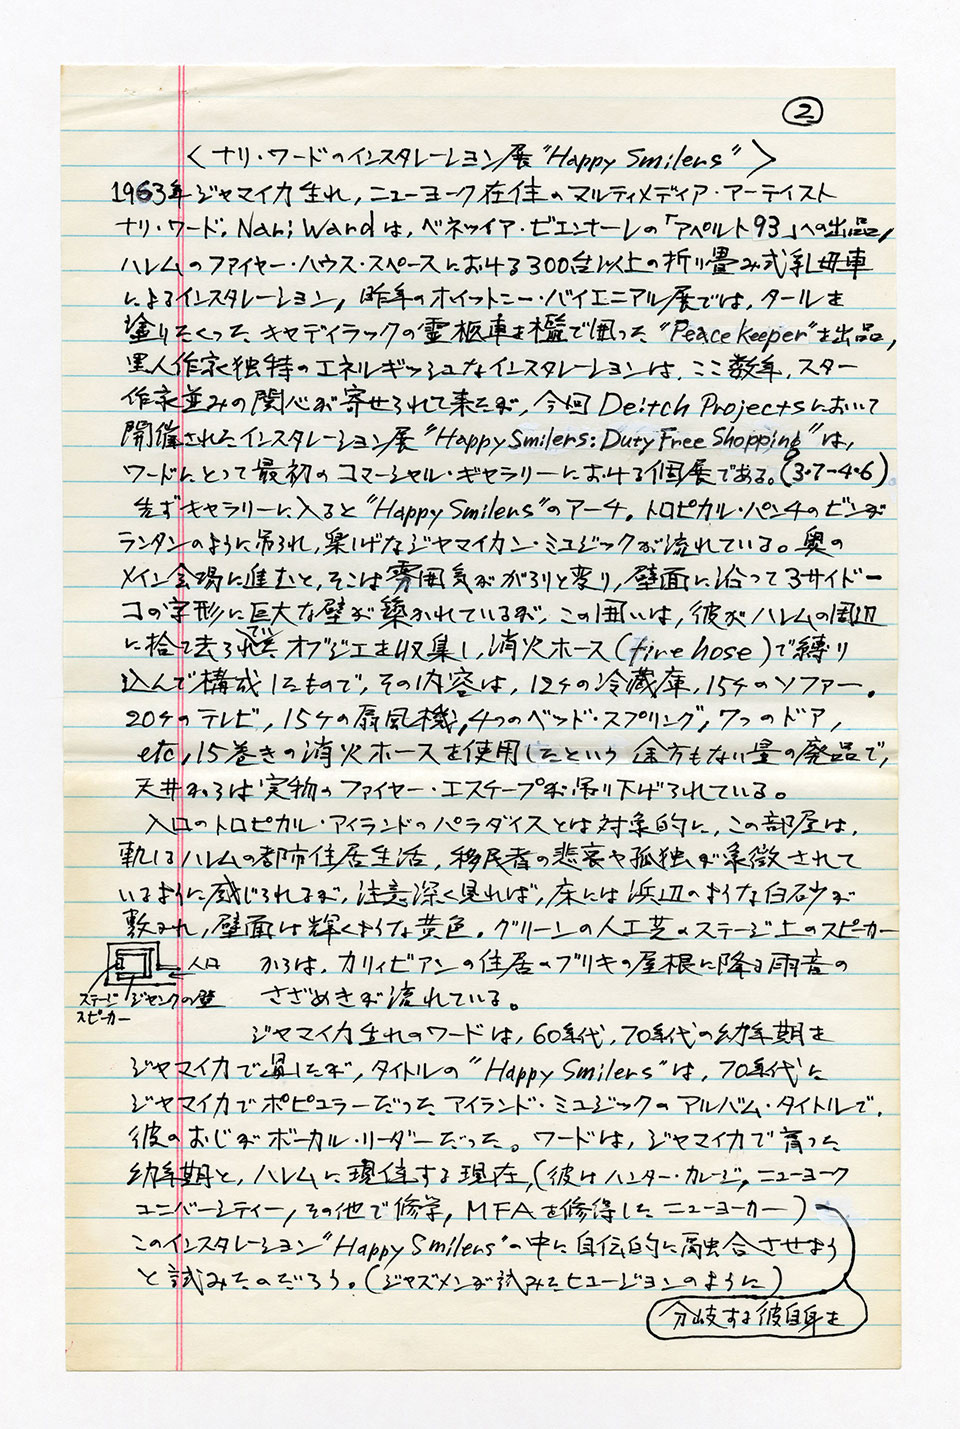 ②
〈ナリ・ワードのインスタレーション展"Happy Smilers"〉
1963年ジャマイカ生れ,ニューヨーク在住のマルティメディア・アーティスト
ナリ・ワード,Nari Wardは,ベネツィア・ビエンナーレの「アペルト93」への出品,
ハレムのファイヤー・ハウス・スペースにおける300台以上の折り畳み式乳母車
によるインスタレーション,昨年のホイットニー・バイエニアル展では,タールを
塗りたくったキャディラックの霊柩車を檻で囲った"Peace keeper"を出品,
黒人作家独特のエネルギッシュなインスタレーションは,ここ数年,スター
作家並みの関心が寄せられて来たが,今回Deitch Projectsにおいて
開催されたインスタレーション展"Happy Smilers: Duty Free Shopping"は,
ワードにとって最初のコマーシャル・ギャラリーにおける個展である。(3・7-4・6)
先ずギャラリーに入ると"Happy Smilers"のアーチ,トロピカル・パンチのビンが
ランタンのように吊られ,楽しげなジャマイカン・ミュジックが流れている。奥の
メイン会場に進むと,そこは雰囲気ががらりと変り,壁面に沿って3サイドー
コの字形に巨大な壁が築かれているが,この囲いは,彼がハレムの周辺
に捨て去られたオブジェを収集し,消火ホース(fire hose)で縛り
込んで構成したもので,その内容は,12ケの冷蔵庫,15ケのソファー,
20ケのテレビ,15ケの扇風機,4つのベッド・スプリング,7つのドア,
etc,15巻きの消火ホースを使用したという途方もない量の廃品で,
天井からは実物のファイヤー・エスケープが吊り下げられている。
入口のトロピカル・アイランドのパラダイスとは対象的に,この部屋は,
軌しるハレムの都市住居生活,移民者の悲哀や孤独が象徴されて
いるように感じられるが,注意深く見れば,床には浜辺のような白砂が
敷かれ,壁面は輝くような黄色,グリーンの人工芝のステージ上のスピーカー
からは,カリィビアンの住居のブリキの屋根に降る雨音の
さざめきが流れている。
入口
ステージ ジャンクの壁
スピーカー
ジャマイカ生れのワードは,60年代,70年代の幼年期を
ジャマイカで過したが,タイトルの"Happy Smilers"は,70年代に
ジャマイカでポピュラーだったアイランド・ミュジックのアルバム・タイトルで,
彼のおじがボーカル・リーダーだった。ワードは,ジャマイカで育った
幼年期と,ハレムに現住する現在,(彼はハンター・カレージ,ニューヨーク
ユニバーシティー,その他で修学,MFAを修得したニューヨーカー)
このインスタレーション"Happy Smilers"の中に自伝的に融合させよう
と試みたのだろう。(ジャズメンが試みたヒュージョンのように)
分岐する彼自身を